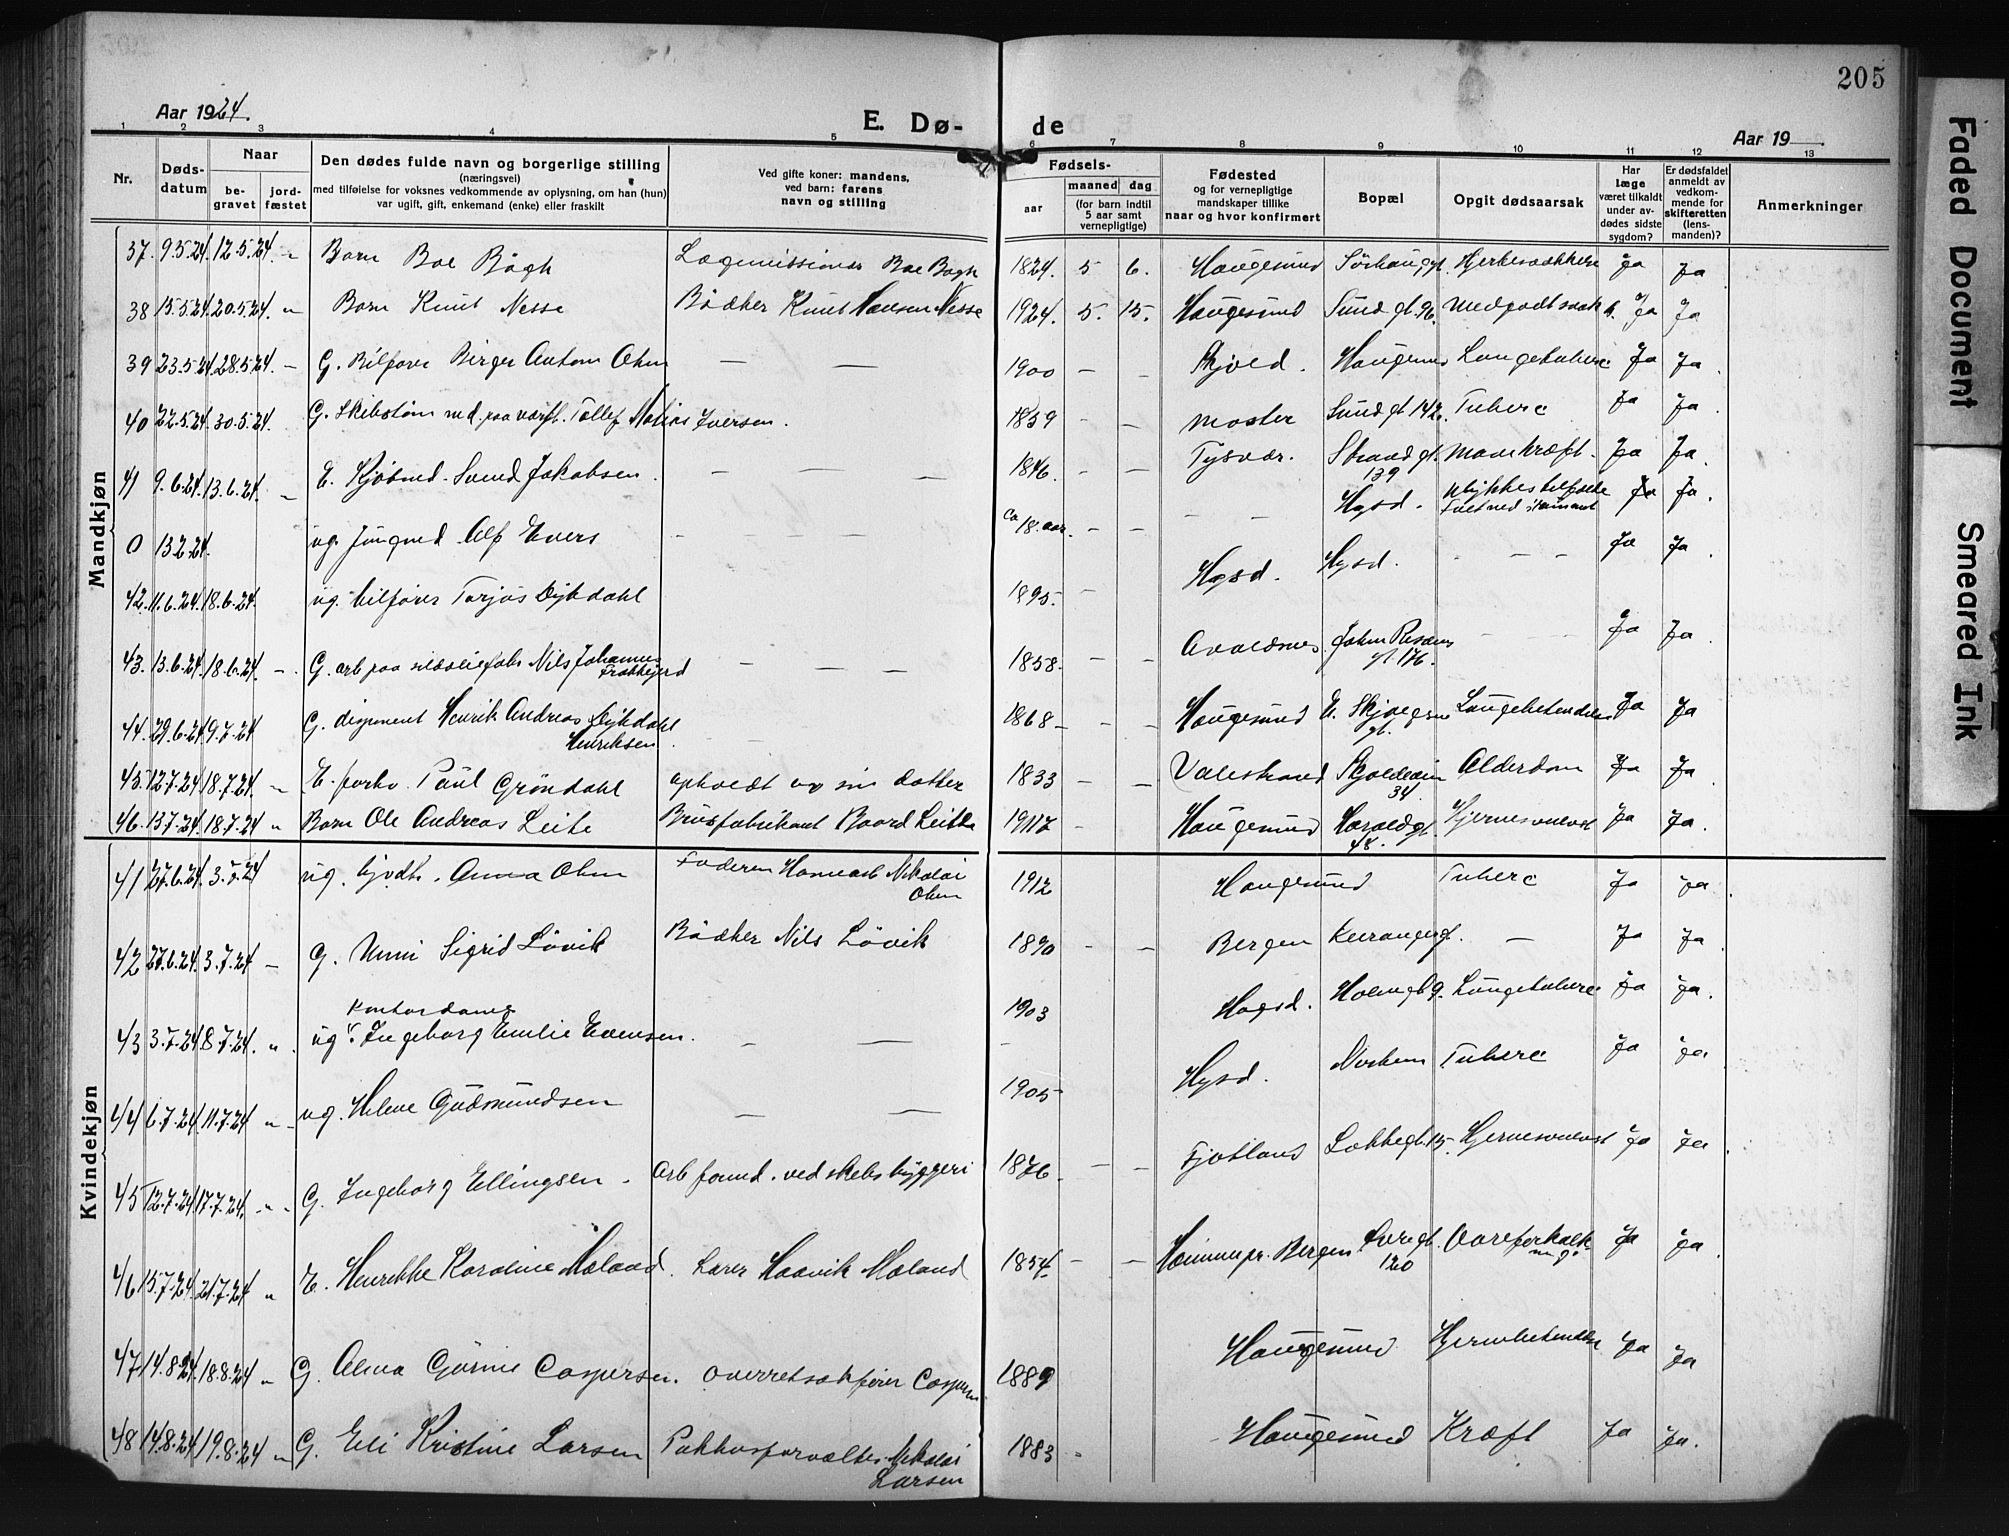 205
Aar 1924.
E. Dø-
de
Aar 19
Faded Document
Smeared Ink
1 2 3 4 5 6 7 8 9 10 11 12 13
Nr.
Døds-
datum
Naar
be-
gravet
jord-
fæstet
Den dødes fulde navn og borgerlige stilling
(næringsvei)
med tilføielse for voksnes vedkommende av oplysning, om han (hun)
var ugift, gift, enkemand (enke) eller fraskilt
Ved gifte koner: mandens,
ved barn: farens
navn og stilling
Fødsels-
aar
maaned
dag
(for barn indtil
5 aar samt
vernepligtige)
Fødested
og for vernepligtige
mandskaper tillike
naar og hvor konfirmert
Bopæl
Opgit dødsaarsak
Har
læge
været tilkaldt
under av-
dødes sidste
sygdom?
Er dødsfaldet
anmeldt av
vedkom-
mende for
skifteretten
(lens-
manden)?
Anmerkninger
Mandkjøn
37. 9.5.24. 12.5.24. " Barn Boe Bögh Lægemissionær Boe Bögh 1824. 5 6. Haugesund Sörhauggt. Ja Ja
38 15.5.24 20.5.24. " Barn Knut Nesse Bödker Knut Hansen Nesse 1924. 5. 15. Haugesund Sund gt. 96. Medfödt svakh. Ja Ja
39 23.5.24 28.5.24. – G. Bilförer Birger Antom Ohm — — 1900 – – Skjold. Haugesund Lungetuberc Ja Ja
40 22.5.24 30.5.24. G. Skibstöm med. paa værft. Tollef Matias Iversen. 1859 – – Moster Sund gt 142. Tuberc Ja Ja
41 9.6.24. 13.6.24. – E. Kjöbmd. Svend Jakobsen. – — — 1846. – – Tysvær. Strand gt. Mavekræft. Ja Ja.
139
0 13.2.24. ug. Jungmd Alf Evers – – – ca 18. aar. – – – – Hgsd. Ulykkestilfælde Ja Ja.
42. 11.6.24. 18.6.24. ug. bilförer Torjös Dykdahl 1895. – Hgsd. Hgsd. – – – Ja Ja.
43. 13.6.24. 18.6.24. –. G. arb paa sildoliefabr Nils Johannes – — — 1858. – – Avaldsnes. Johan – – Ja Ja.
gt. 176.
44. 29.6.24 9.7.24 G. disponent Henrik Andreas Dykdahl – — 1868 – – – Haugesund Ja Ja
Henriksen.
45. 12.7.24. 18.7.24. " E. forhv. Paul Gröndahl opholdt av sin datter 1833 – – Valestrand Skjoldavn Alderdom Ja Ja
34.
46. 13.7.24. 18.7.24 " Barn Ole Andreas Leite Brusfabrikant Baard Leite 1917 – Haugesund Haraldgt. Hjernesvulst Ja Ja.
48.
Kvindekjøn
41 27.6.24. 3.7.24 ug. Anna Ohm Faderen Havnearb Nikolai 1912 Haugesund Tuberc Ja Ja
Ohm
42 27.6.24. 3.7.24 – G. Unni Sigrid Lövik Bödker Nils Lövik 1890 – – Bergen – Ja Ja
Kontordame
43 3.7.24 8.7.24. " ug. Ingeborg Emilie Evensen. – — 1903 Hagsd. Holmgt 9. Lungetuberc Ja Ja.
44 6.7.24. 11.7.24 " ug. Helene Gudmundsen – — 1905 Hgsd. Norheim Tuberc Ja Ja
45 12.7.24 17.7.24. " G. Ingeborg Ellingsen. Arb formd. ved skibsbyggeri 1876. – – Fjotland Lokkegt. 15. Hjernesvulst Ja Ja
46 15.7.24 21.7.24 " E. Henrikke Karoline Mæland. Lærer Haavik Mæland 1854. – – Bergen Övregt. Aareforkalk- Ja Ja.
120 ning.
47 14.8.24. 18.8.24 " G. Alma Caspersen. Overretsakförer Caspersen 1889 Haugesund Hjernebetændelse Ja Ja
48 14.8.24 19.8.24 " G. Eli Kristine Larsen Pakhusforvalter Nikolai 1883 – Haugesund Kræft Ja Ja.
Larsen